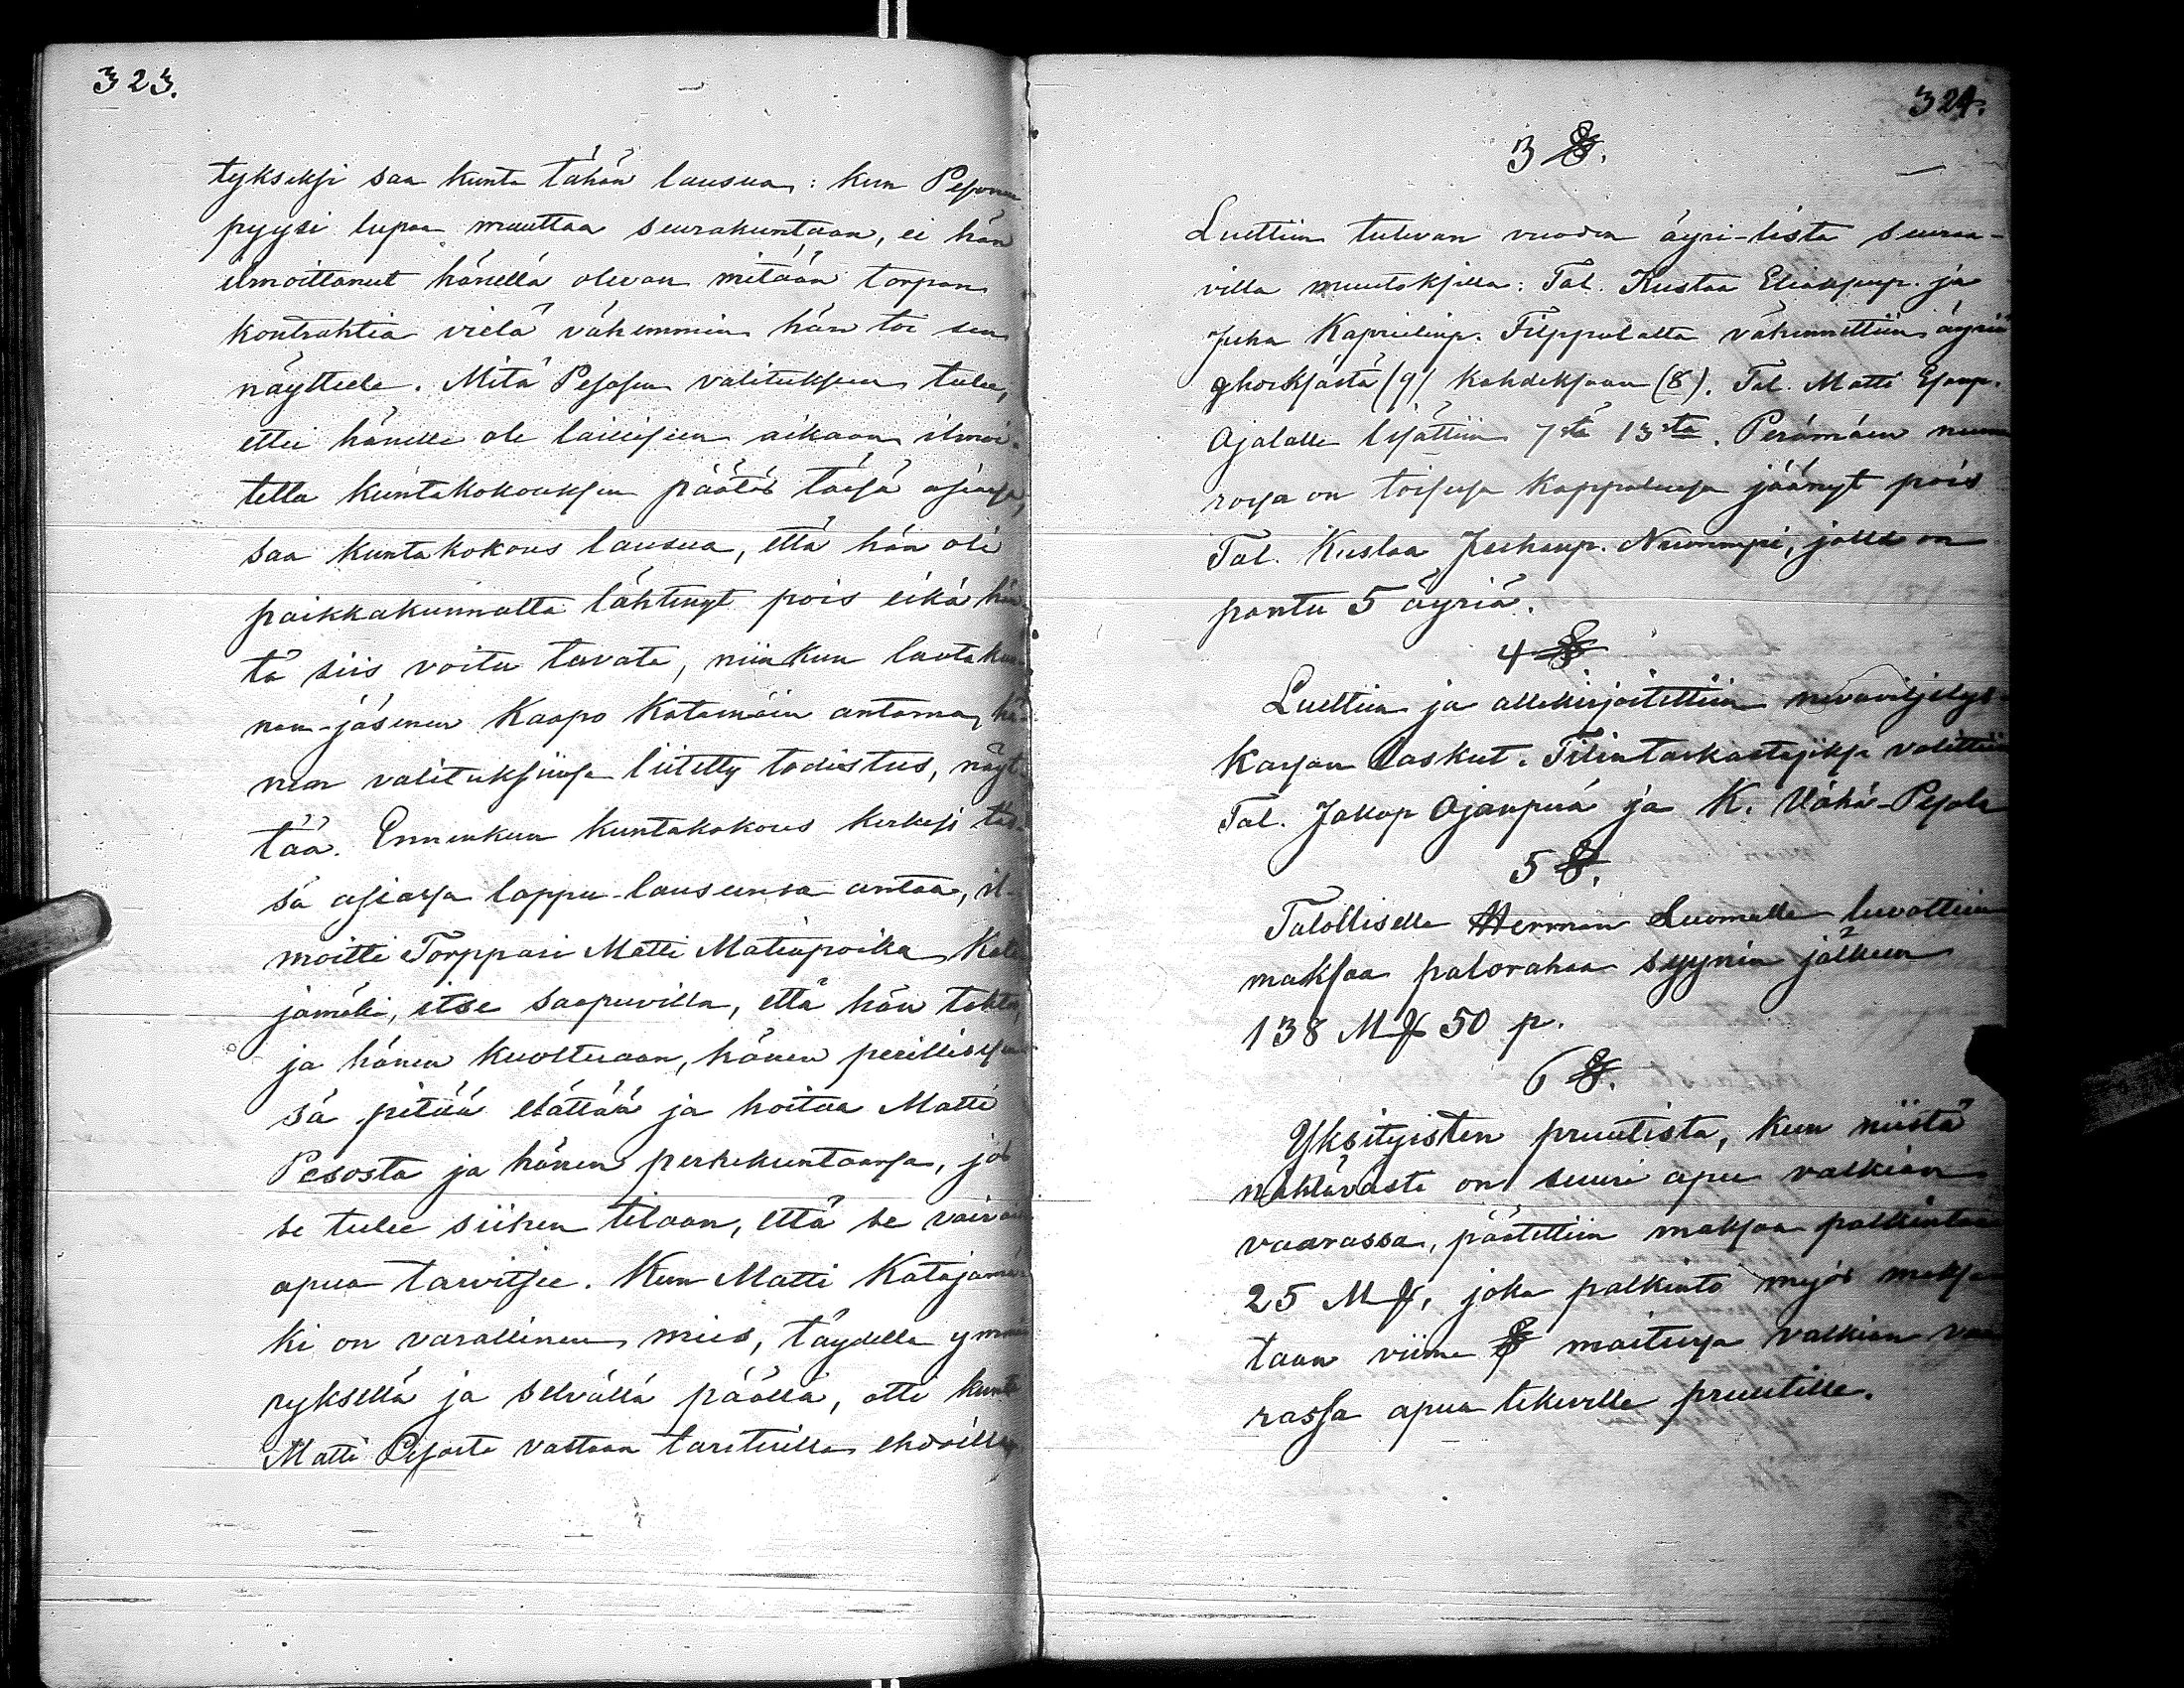 323.
tykseksi saa kunta tähän lausua: kun Pesonen
pyysi lupaa muuttaa seurakuntaan, ei hän
ilmoittanut hänellä olevan mitään torpan
kontrahtia vielä vähemmin hän toi sen
näytteele. Mitä Pesosen valitukseen tulee,
ettei hänelle ole lailliseen aikaan ilmoi-
tettu kuntakokouksen päätös tässä asiassa,
saa kuntakokous lausua, että hän oli
paikkakunnalta lähtenyt pois eikä hän-
tä siis voitu tavata, niinkun lautakun-
nan-jäsenen Kaapo Katamäen antama, hä-
nen valituksiinsa liitetty todistus, näyt-
tää. Ennenkun kuntakokous kerkesi täs-
sä asiassa loppu-lauseensa antaa, il-
moitti Torppari Matti Matinpoika Kata
jamäki, itse saapuvilla, että hän tahtoo,
ja hänen kuoltuaan, hänen perillisen
sä pitää elättää ja hoitaa Matti
Pesosta ja hänen perhekuntaansa, jos
se tulee siihen tilaan, että se vaivais
apua tarvitsee. Kun Matti Katajamä
ki on varallinen mies, täydellä ymmär
ryksellä ja selvällä päällä, otti kunta
Matti Pesosta vastaan tarituilla ehdoilla,
324.
3 §.
Luettiin tulevan vuoden äyri-lista seuraa-
villa muutoksilla: Tal. Kustaa Eliakssonp. ja
Juha Kaprielinp. Filppulalta vähennettiin äyriä
yhdeksästä (9) kahdeksaan (8). Tal. Matti Esanp.
Ajalalle lisättiin 7stä 13sta. Perämäen nume
rossa on toisessa kappaleessa jäänyt pois
Tal. Kustaa Juhanp. Nuorempi, jolle on
pantu 5 äyriä.
4 §
Luettiin ja allekirjoitettiin nevaviljelys
karjan laskut. Tilintarkastajiksi valittiin
Tal. Jakop Ojanperä ja K. Vähä-Pesola
5 §.
Talolliselle Herman Luomalle luvattiin
maksaa palorahaa syynin jälkeen
138 Mk 50 p.
6 §.
Yksityisten pruutista, kun niistä
nähtävästi on suuri apu valkian
vaarassa, päätettiin maksaa palkintoa
25 Mk, joka palkinto myös makse
taan viime § maitussa valkian vaa
rassa apua tekeville pruutille.